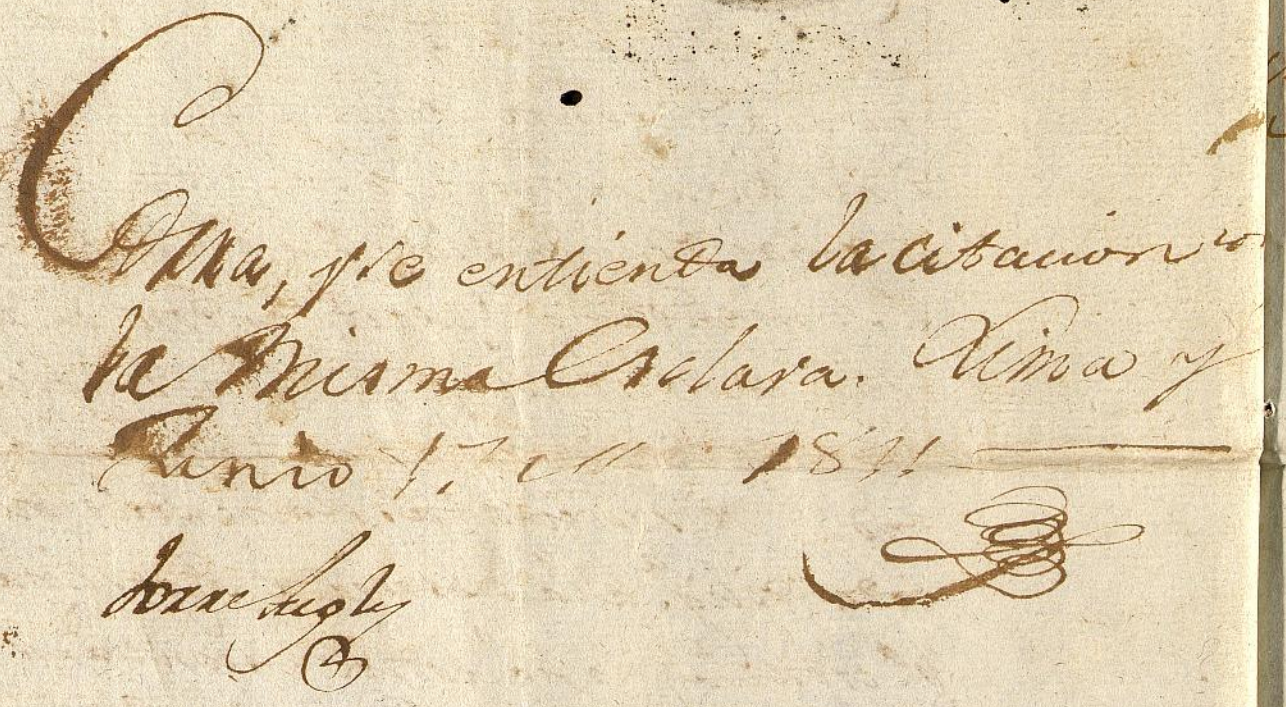 Corra, y se entienda la citacion co
la misma Esclava. Lima y
Junio 17 de 1811